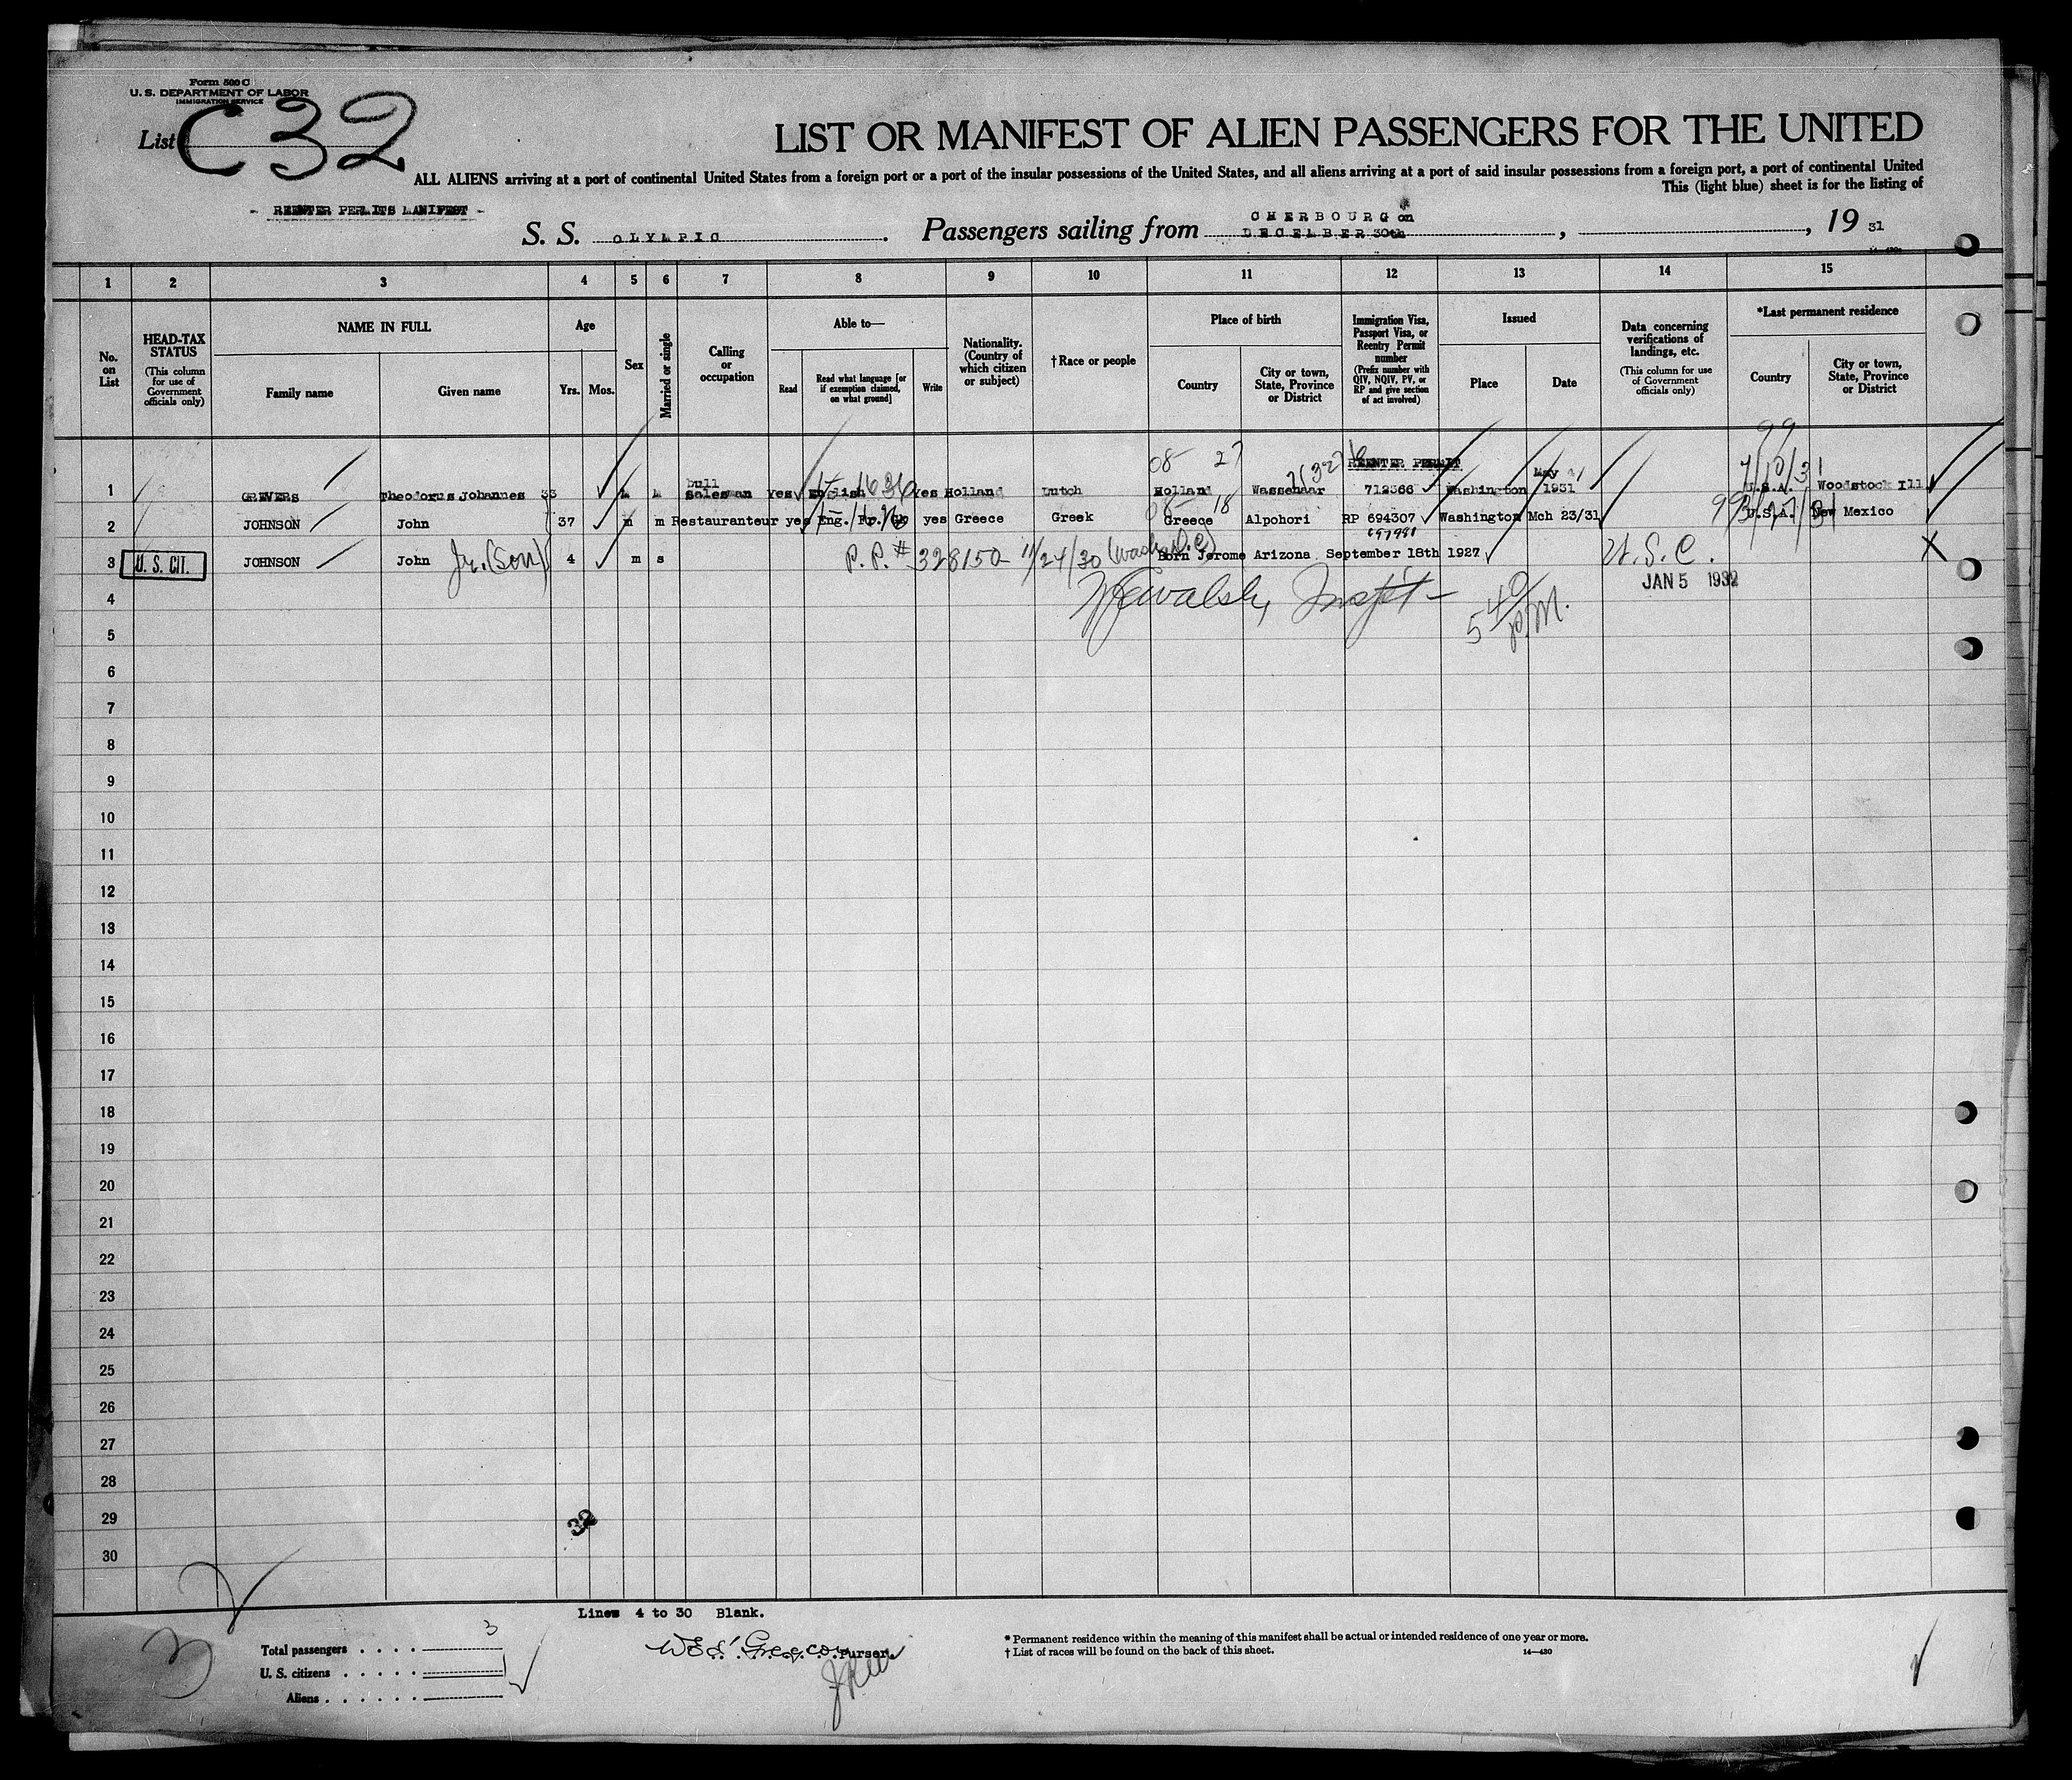 Form 500 C
U. S. DEPARTMENT OF LABOR
IMMIGRATION SERVICE
List C32
LIST OR MANIFEST OF ALIEN PASSENGERS FOR THE UNITED
ALL ALIENS arriving at a port of continental United States from a foreign port or a port of the insular possessions of the United States, and all aliens arriving at a port of said insular possessions from a foreign port, a port of continental United
This (light blue) sheet is for the listing of
- REENTER PERMITS MANIFEST -
S. S. OLYMPIC. Passengers sailing from CHERBOURG on DECEMBER 30th, , 19 31
1 2 3 4 5 6 7 8 9 10 11 12 13 14 15
No. on List
HEAD-TAX STATUS (This column for use of Government officials only)
NAME IN FULL
Family name
Given name
Age
Yrs. Mos.
Sex
Married or single
Calling or occupation
Able to—
Read
Read what language [or if exemption claimed, on what ground]
Write
Nationality. (Country of which citizen or subject)
†Race or people
Place of birth
Country
City or town, State, Province or District
Immigration Visa, Passport Visa, or Reentry Permit number (Prefix number with QIV, NQIV, PV, or RP and give section of act involved)
Issued
Place
Date
Data concerning verifications of landings, etc. (This column for use of Government officials only)
*Last permanent residence
Country
City or town, State, Province or District
99
08 27 REENTER PERMIT
1 GREVERS Theodorus Johannes 33 M M bull salesman yes English yes Holland Dutch Holland Wassenaar 712366 Washington May 1931 U.S.A. Woodstock Ill
08 18
2 JOHNSON John 37 m m Restauranteur yes Eng./Fr./Gk yes Greece Greek Greece Alpohori RP 694307 Washington Mch 23/31 U.S.A. New Mexico
697981
3 U. S. CIT. JOHNSON John Jr. (Son) 4 m s P. P. # 328150 11/24/30 (Wash. D.C.) Born Jerome Arizona September 18th 1927 U.S.C. X
JAN 5 1932
4 Walsh, Inspt- 5 40/P.M.
5
6
7
8
9
10
11
12
13
14
15
16
17
18
19
20
21
22
23
24
25
26
27
28
29 32
30
Lines 4 to 30 Blank.
Total passengers . . . . 3
U. S. citizens . . . . .
Aliens . . . . . .
3
Purser.
* Permanent residence within the meaning of this manifest shall be actual or intended residence of one year or more.
† List of races will be found on the back of this sheet.
14—430